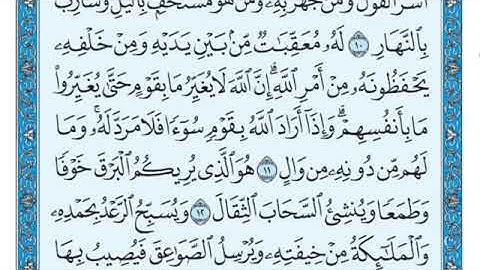 أَسَرَّ ٱلۡقَوۡلَ وَمَن جَهَرَ بِهِۦ وَمَنۡ هُوَ مُسۡتَخۡفِۭ بِٱلَّيۡلِ وَسَارِبُۢ
بِٱلنَّهَارِ ١٠ لَهُۥ مُعَقِّبَٰتٞ مِّنۢ بَيۡنِ يَدَيۡهِ وَمِنۡ خَلۡفِهِۦ
يَحۡفَظُونَهُۥ مِنۡ أَمۡرِ ٱللَّهِۗ إِنَّ ٱللَّهَ لَا يُغَيِّرُ مَا بِقَوۡمٍ حَتَّىٰ يُغَيِّرُواْ
مَا بِأَنفُسِهِمۡۗ وَإِذَآ أَرَادَ ٱللَّهُ بِقَوۡمٖ سُوٓءٗا فَلَا مَرَدَّ لَهُۥۚ وَمَا
لَهُم مِّن دُونِهِۦ مِن وَالٍ ١١ هُوَ ٱلَّذِي يُرِيكُمُ ٱلۡبَرۡقَ خَوۡفٗا
وَطَمَعٗا وَيُنشِئُ ٱلسَّحَابَ ٱلثِّقَالَ ١٢ وَيُسَبِّحُ ٱلرَّعۡدُ بِحَمۡدِهِۦ
وَٱلۡمَلَٰٓئِكَةُ مِنۡ خِيفَتِهِۦ وَيُرۡسِلُ ٱلصَّوَٰعِقَ فَيُصِيبُ بِهَا